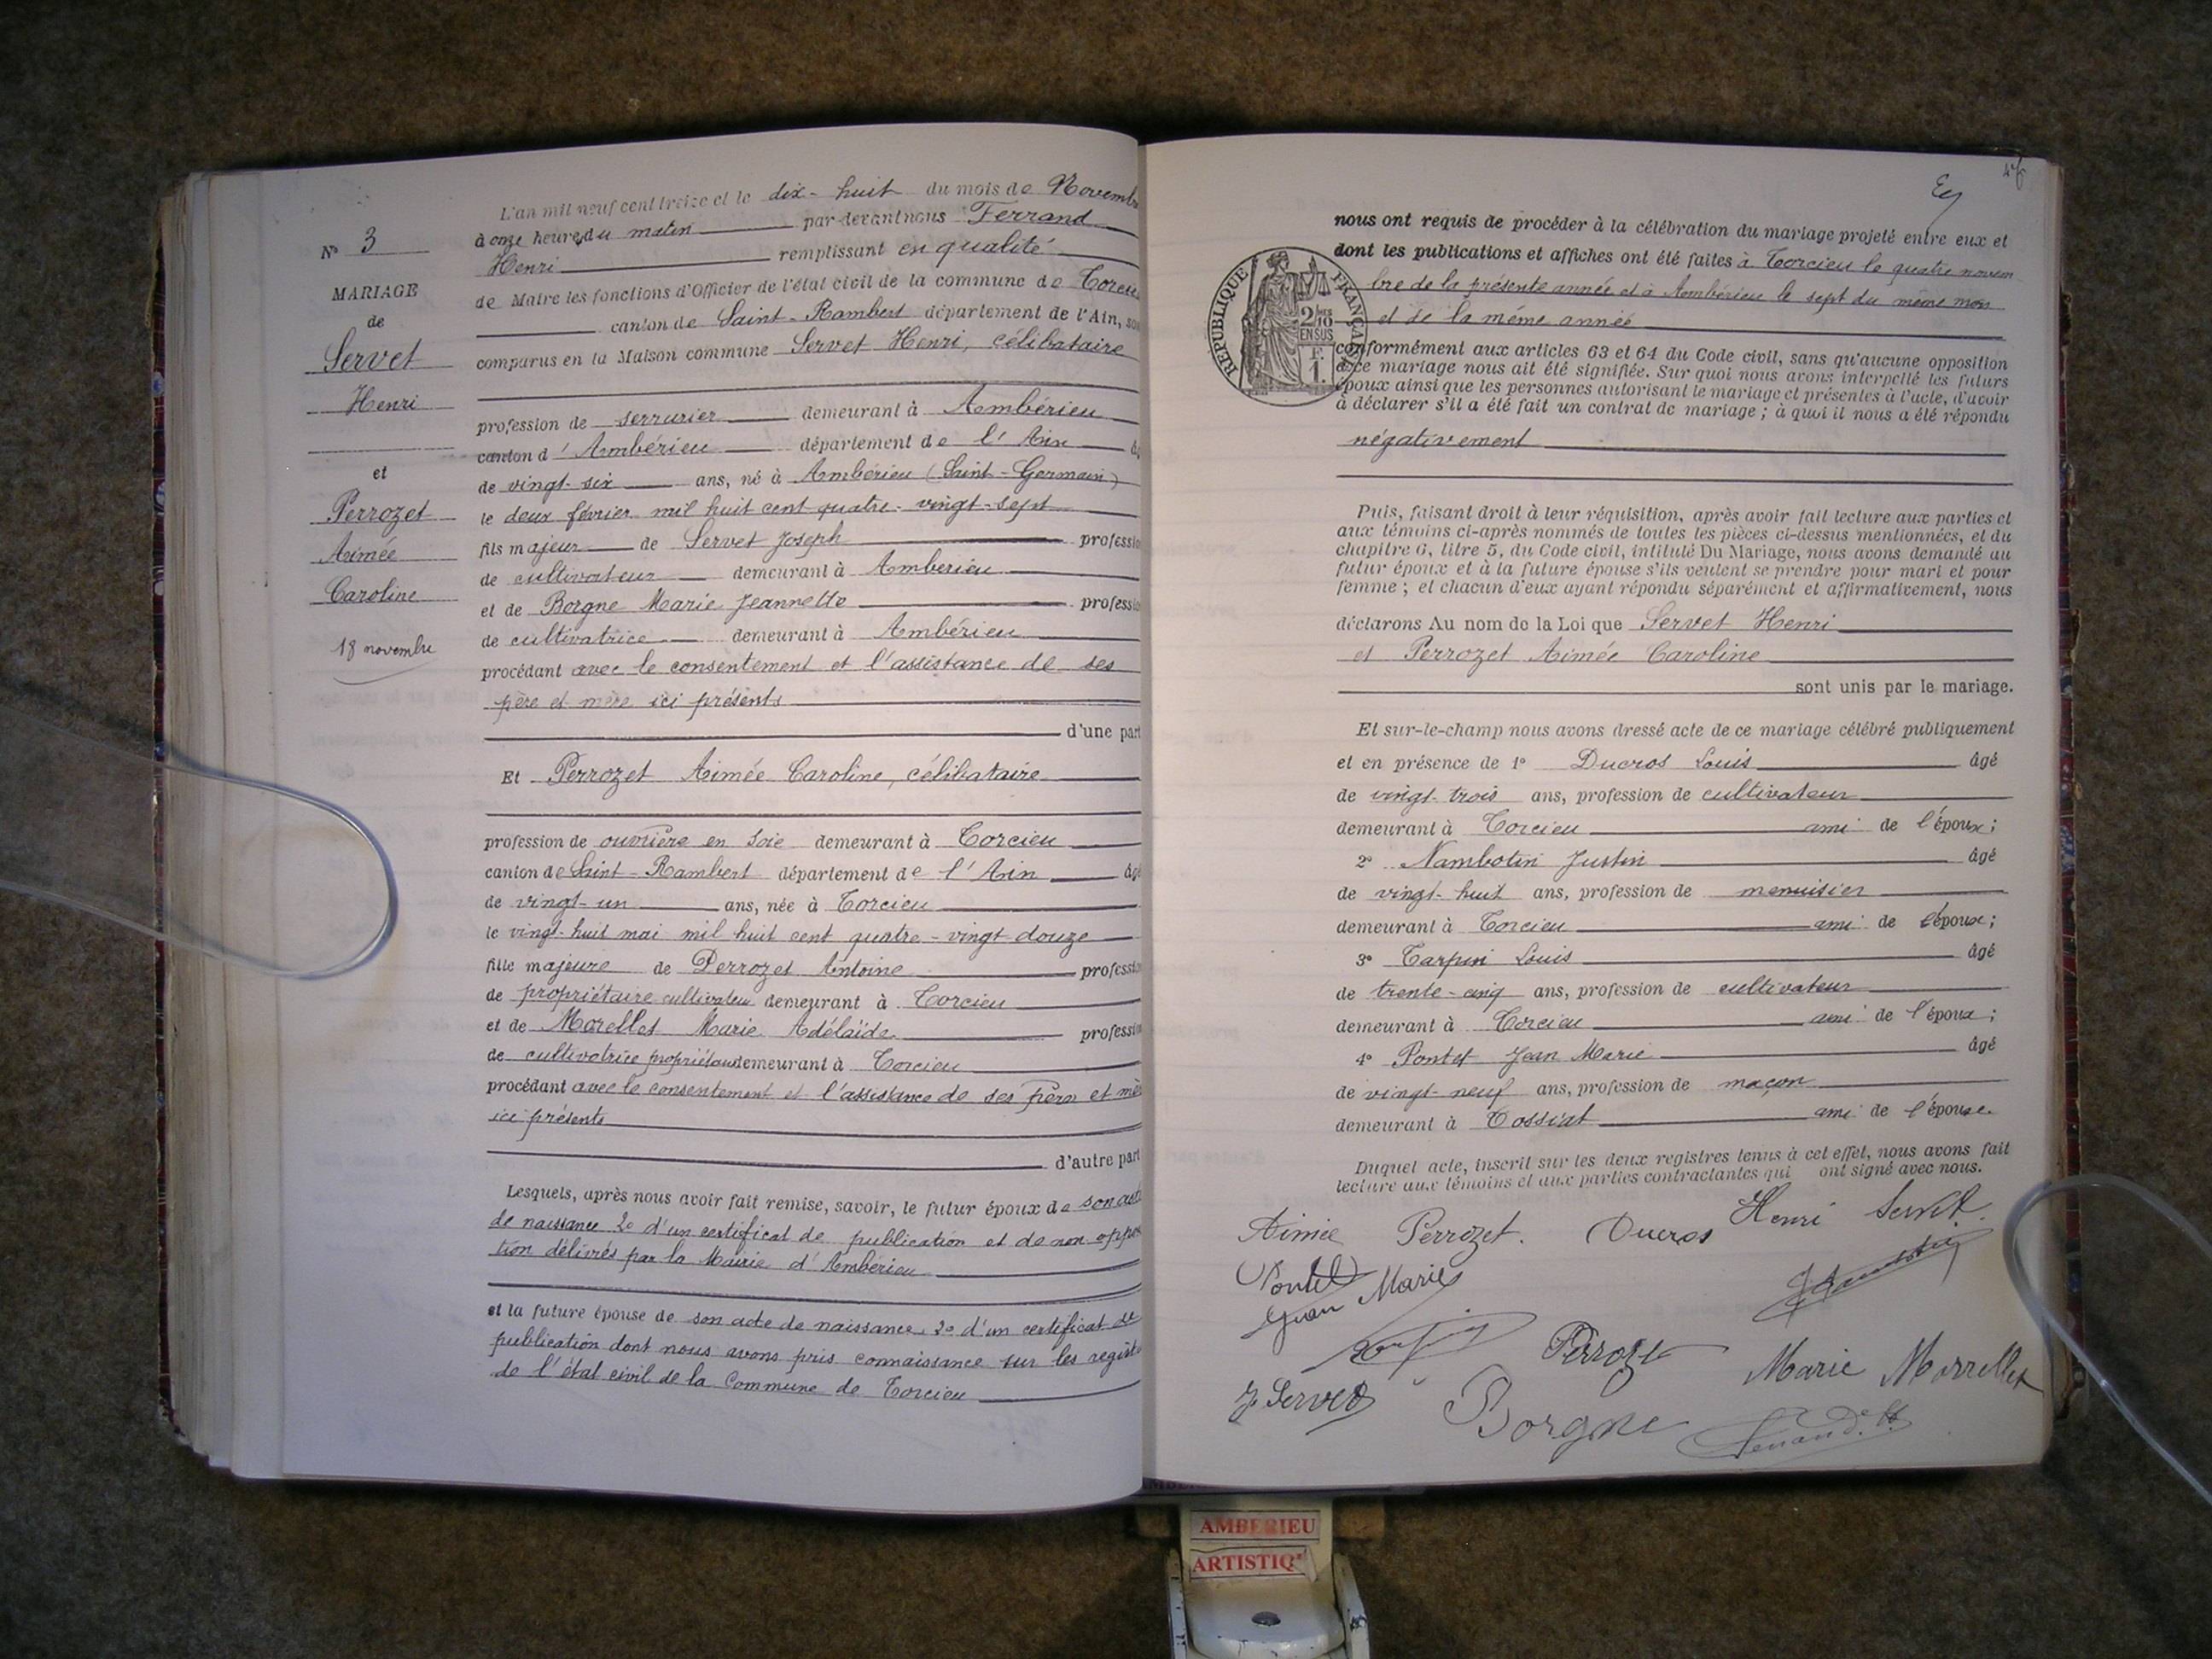 N° 3
MARIAGE
de
Servet
Henri
et
Perrozet
Aimée
Caroline
18 novembre
L'an mil neuf cent treize et le dix-huit du mois de Novembre
à onze heures du matin par devant nous Ferrand
Henri remplissant en qualité
de Maire les fonctions d'Officier de l'état civil de la commune de Torcieu
canton de Saint-Rambert département de l'Ain, son
comparus en la Maison commune Servet Henri, célibataire
profession de serrurier demeurant à Ambérieu
canton d'Ambérieu département de l'Ain âg
de vingt-six ans, né à Ambérieu (Saint-Germain)
le deux février mil huit cent quatre-vingt-sept
fils majeur de Servet Joseph professio
de cultivateur demeurant à Amberieu
et de Borgne Marie Jeannette professio
de cultivatrice demeurant à Ambérieu
procédant avec le consentement et l'assistance de ses
père et mère ici présents
d'une part
Et Perrozet Aimée Caroline, célibataire
profession de ouvrière en soie demeurant à Torcieu
canton de Saint-Rambert département de l'Ain âgé
de vingt-un ans, née à Torcieu
le vingt-huit mai mil huit cent quatre-vingt douze
fille majeure de Perrozet Antoine professio
de propriétaire cultivateur demeurant à Torcieu
et de Morellet Marie Adélaïde professio
de cultivatrice propriétaire demeurant à Torcieu
procédant avec le consentement et l'assistance de ses père et mè
ici présents
d'autre part
Lesquels, après nous avoir fait remise, savoir, le futur époux de son acte
de naissance 2° d'un certificat de publication et de non oppo
tion délivrés par la Mairie d'Ambérieu
et la future épouse de son acte de naissance, 2° d'un certificat de
publication dont nous avons pris connaissance sur les regist
de l'état civil de la Commune de Torcieu
nous ont requis de procéder à la célébration du mariage projeté entre eux et
dont les publications et affiches ont été faites à Torcieu le quatre novem
bre de la présente année et à Ambérieu le sept du même mois
et de la même année
REPUBLIQUE FRANÇAISE
2/10 EN SUS
F. 1.
conformément aux articles 63 et 64 du Code civil, sans qu'aucune opposition
à ce mariage nous ait été signifiée. Sur quoi nous avons interpellé les futurs
époux ainsi que les personnes autorisant le mariage et présentes à l'acte, d'avoir
à déclarer s'il a été fait un contrat de mariage ; à quoi il nous a été répondu
négativement
Puis, faisant droit à leur réquisition, après avoir fait lecture aux parties et
aux témoins ci-après nommés de toutes les pièces ci-dessus mentionnées, et du
chapitre 6, titre 5, du Code civil, intitulé Du Mariage, nous avons demandé au
futur époux et à la future épouse s'ils veulent se prendre pour mari et pour
femme ; et chacun d'eux ayant répondu séparément et affirmativement, nous
déclarons Au nom de la Loi que Servet Henri
et Perrozet Aimée Caroline
sont unis par le mariage.
Et sur-le-champ nous avons dressé acte de ce mariage célébré publiquement
et en présence de 1° Ducros Louis âgé
de vingt-trois ans, profession de cultivateur
demeurant à Torcieu ami de l'époux ;
2° Nambotin Justin âgé
de vingt-huit ans, profession de menuisier
demeurant à Torcieu ami de l'époux ;
3° Tarpin Louis âgé
de trente-cinq ans, profession de cultivateur
demeurant à Torcieu ami de l'époux ;
4° Pontet Jean Marie âgé
de vingt-neuf ans, profession de maçon
demeurant à Tossiat ami de l'épouse.
Duquel acte, inscrit sur les deux registres tenus à cet effet, nous avons fait
lecture aux témoins et aux parties contractantes qui ont signé avec nous.
Aimée Perrozet. Ducros Henri Servet.
Pontet
Jean Marie
Perrozet Marie Morrellet
J. Servet Borgne Ferrand. H.
AMBERIEU
ARTISTIQ'